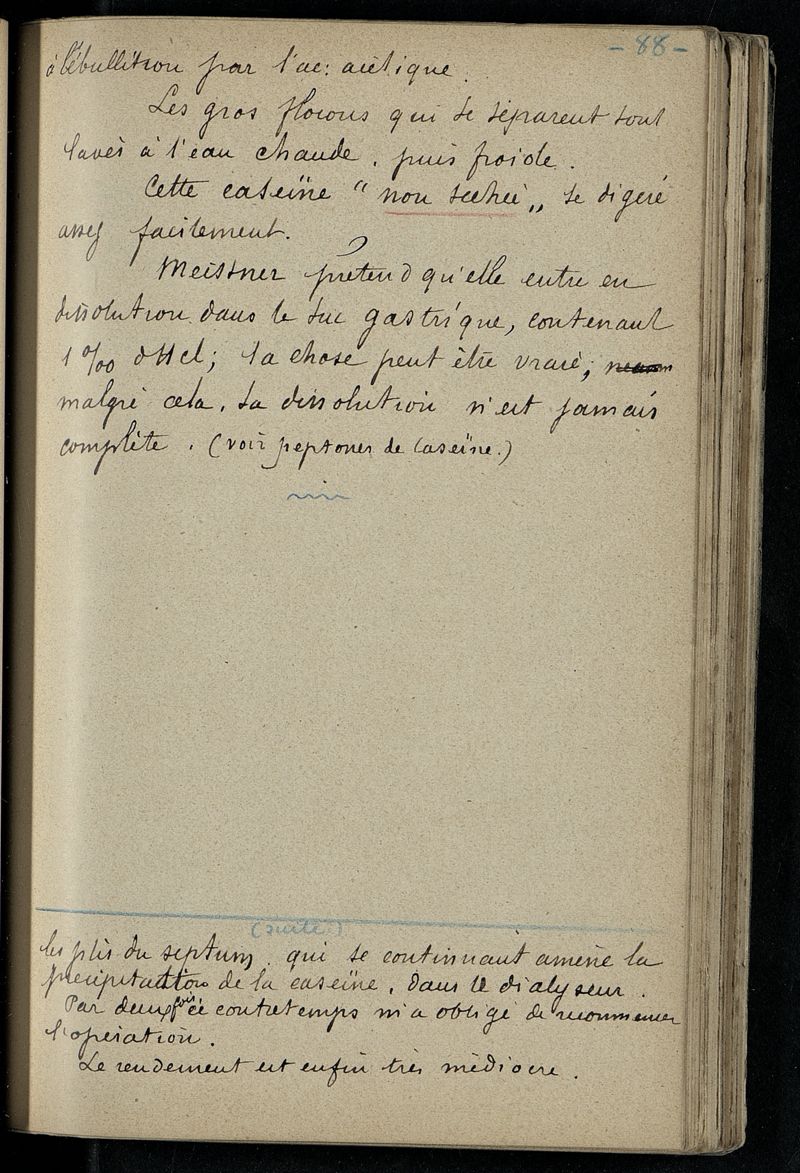 - 88 -
à l'ébullition par l'ac: acétique.
Les gros flocons qui se séparent sont
lavés à l'eau chaude, puis froide.
Cette caseïne " non sechée „ se digère
assez facilement.
Meissner prétend qu'elle entre en
dissolution dans le suc gastrique, contenant
1 ‰ d'HCl; la chose peut être vraie;
malgré cela, la dissolution n'est jamais
complète. (voir peptones de Caseïne.)
(suite)
les plis du septum, qui se continuant amène la
précipitation de la caseïne, dans le dialyseur.
Par deux fois ce contretemps m'a obligé de recommencer
l'opération.
Le rendement est enfin très médiocre.